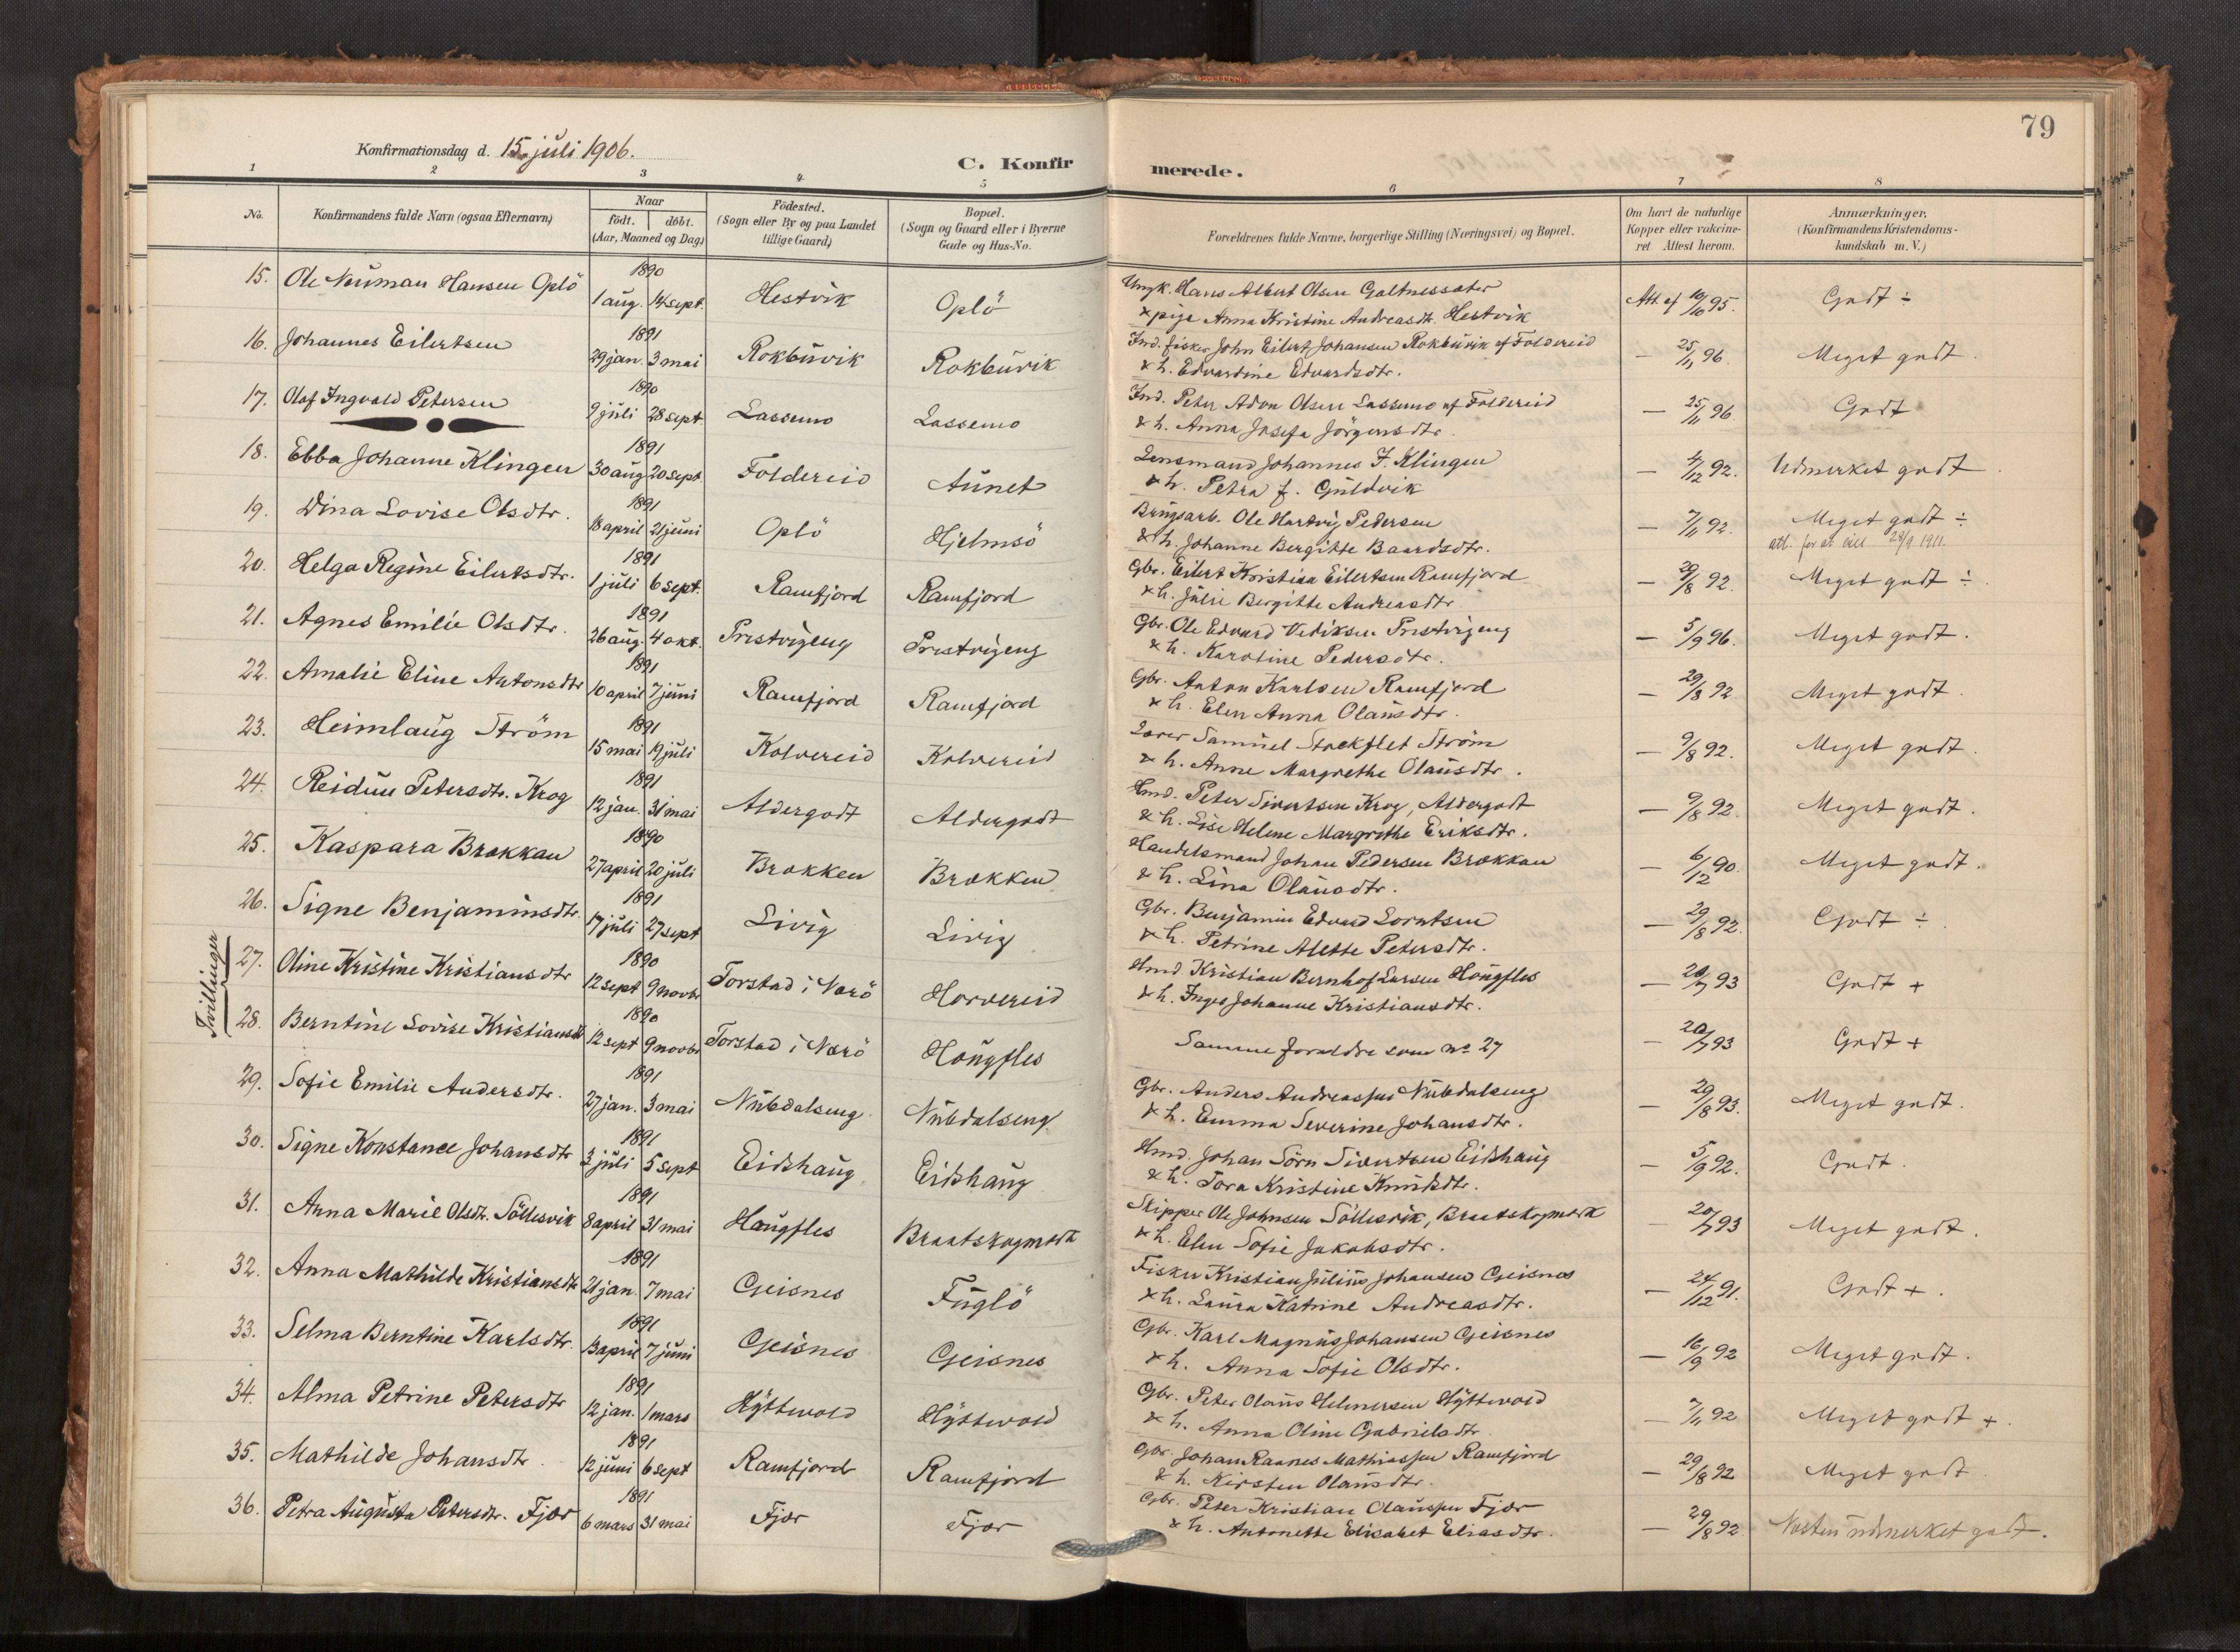 79
Konfirmationsdag d. 15 juli 1906.
C. Konfir
merede.
1 2 3 4 5 6 7 8
No.
Konfirmandens fulde Navn (ogsaa Efternavn)
Naar
födt. döbt.
(Aar, Maaned og Dag)
Födested.
(Sogn eller By og paa Landet
tillige Gaard)
Bopæl.
(Sogn og Gaard eller i Byerne
Gade og Hus-No.
Forældrenes fulde Navne, borgerlige Stilling (Næringsvei) og Bopæl.
Om havt de naturlige
Kopper eller vakcine-
ret Attest herom.
Anmærkninger.
(Konfirmandens Kristendoms-
kundskab m. V.)
1890
15. Ole Neuman Hansen Oplö 1 aug. 14 sept. Hestvik Oplö
Ungk. Hans Albert Olsen Galtnessæter
& pige Anna Kristine Andreasdtr. Hestvik
Att. af 10/10 95. Godt ÷
1891
16. Johannes Eilertsen 29 jan. 3 mai Rokbürvik Rokbürvik
Ind. fisker John Eilert Johansen Rokbürvik af Foldereid
& h. Edvardine Edvardsdtr.
— 25/11 96 Meget godt.
1890
17. Olaf Ingvald Petersen 9 juli 28 sept. Lassemo Lassemo
Ind. Peter Adon Olsen Lassemo af Foldereid
& h. Anna Josefa Jörgensdtr.
— 25/11 96 Godt
1891
18. Ebba Johanne Klingen 30 aug 20 sept. Foldereid Aunet
Lensmand Johannes J. Klingen
& h. Petra f. Guldvik
— 4/12 92. Udmerket godt.
1891
19. Dina Lovise Olsdtr. 18 april 21 juni Oplö Hjelmsö
Brugsarb. Ole Hartvig Pedersen
& h. Johanne Bergitte Baardsdtr.
— 7/11 92. Meget godt ÷
att. for at 28/9 1911.
1891
20. Helga Regine Eilertsdtr. 1 juli 6 sept. Ramfjord Ramfjord
Gbr. Eilert Kristian Eilertsen Ramfjord
& h. Julie Bergitte Andreasdtr
— 29/8 92. Meget godt ÷
1891
21. Agnes Emilie Olsdtr. 26 aug. 4 okt. Prestvigeng Prestvigeng
Gbr. Ole Edvard Vediksen Prestvigeng
& h. Karoline Pedersdtr.
— 5/9 96. Meget godt.
1891
22. Amalie Eline Antonsdtr 10 april 7 juni Ramfjord Ramfjord
Gbr. Anton Karlsen Ramfjord
& h. Elen Anna Olausdtr.
— 29/8 92. Meget godt.
1891
23. Heimlaug Ström 15 mai 19 juli Kolvereid Kolvereid
Lærer Samuel Stockflet Ström
& h. Anne Margrethe Olausdtr.
— 9/8 92. Meget godt.
1891
24. Reidun Petersdtr. Krog 12 jan. 31 mai Aldergodt Aldergodt
Hmd. Peter Sivertsen Krog, Aldergodt
& h. Lise Helene Margrethe Eriksdtr.
— 9/8 92. Meget godt.
1890
25. Kaspara Brækkan 27 april 20 juli Brækken Brækken
Handelsmand Johan Pedersen Brækkan
& h. Lina Olausdtr.
— 6/12 90. Meget godt.
1891
26. Signe Benjaminsdtr. 17 juli 27 sept Livig Livig
Gbr. Benjamin Edvard Lorntsen
& h. Petrine Alette Petersdtr.
— 29/8 92. Godt ÷
Tvillinger
1890
27. Oline Kristine Kristiansdtr 12 sept 9 novbr Torstad i Nærö Horvereid
Hmd Kristian Bernhof Larsen Haugfles
& h. Inger Johanne Kristiansdtr.
— 20/7 93 Godt +
1890
28. Berntine Lovise Kristiansdtr 12 sept 9 novbr Torstad i Nærö Haugfles
Samme forældre som no 27
— 20/7 93 Godt +
1891
29. Sofie Emilie Andersdtr. 27 jan. 3 mai Nubdalseng Nubdalseng
Gbr. Anders Andreassen Nubdalseng
& h. Emma Severine Johansdtr.
— 29/8 93. Meget godt.
1891
30. Signe Konstance Johansdtr 3 juli 5 sept Eidshaug Eidshaug
Hmd. Johan Sörn Sivertsen Eidshaug
& h. Tora Kristine Knudsdtr.
— 5/9 92. Godt.
1891
31. Anna Marie Olsdtr. Söllesvik 8 april 31 mai Haugfles Braatskogmark
Skipper Ole Johnsen Söllesvik, Braatskogmark
& h. Elen Sofie Jakobsdtr.
— 20/7 93 Meget godt.
1891
32. Anna Mathilde Kristiansdtr 21 jan. 7 mai Geisnes Fuglö
Fisker Kristian Julius Johansen Geisnes
& h. Laura Katrine Andreasdtr.
— 24/12 91. Godt +.
1891
33. Selma Berntine Karlsdtr. 13 april 7 juni Geisnes Geisnes
Gbr. Karl Magnus Johansen Geisnes
& h. Anna Sofie Olsdtr.
— 16/9 92 Meget godt.
1891
34. Alma Petrine Petersdtr 12 jan. 1 mars Hyttevold Hyttevold
Gbr. Peter Olaus Helmersen Hyttevold
& h. Anna Oline Gabrielsdtr
— 7/11 92 Meget godt +.
1891
35. Mathilde Johansdtr 12 juni 6 sept Ramfjord Ramfjord
Gbr. Johan Raanes Mathiassen Ramfjord
& h. Kirsten Olausdtr.
— 29/8 92 Meget godt
1891
36. Petra Augusta Petersdtr. Fjær 6 mars 31 mai Fjær Fjær
Gbr. Peter Kristian Olaussen Fjær
& h. Antonette Elisabet Eliasdtr.
— 29/8 92. Næsten udmerket godt.